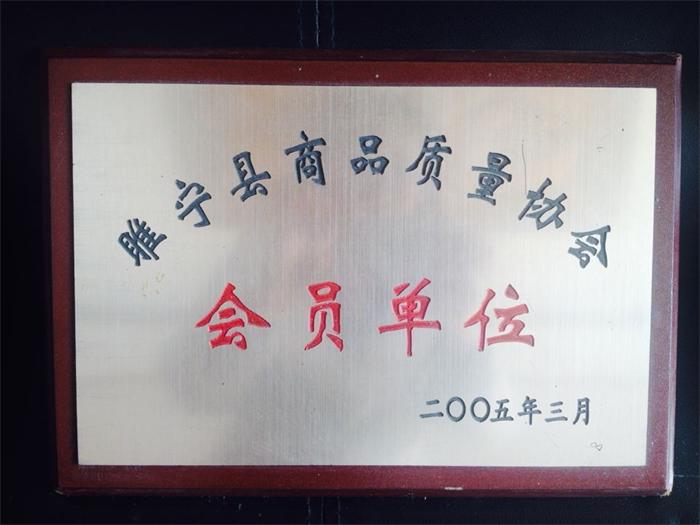 睢宁县商品质量协会
会员单位
二〇〇五年三月